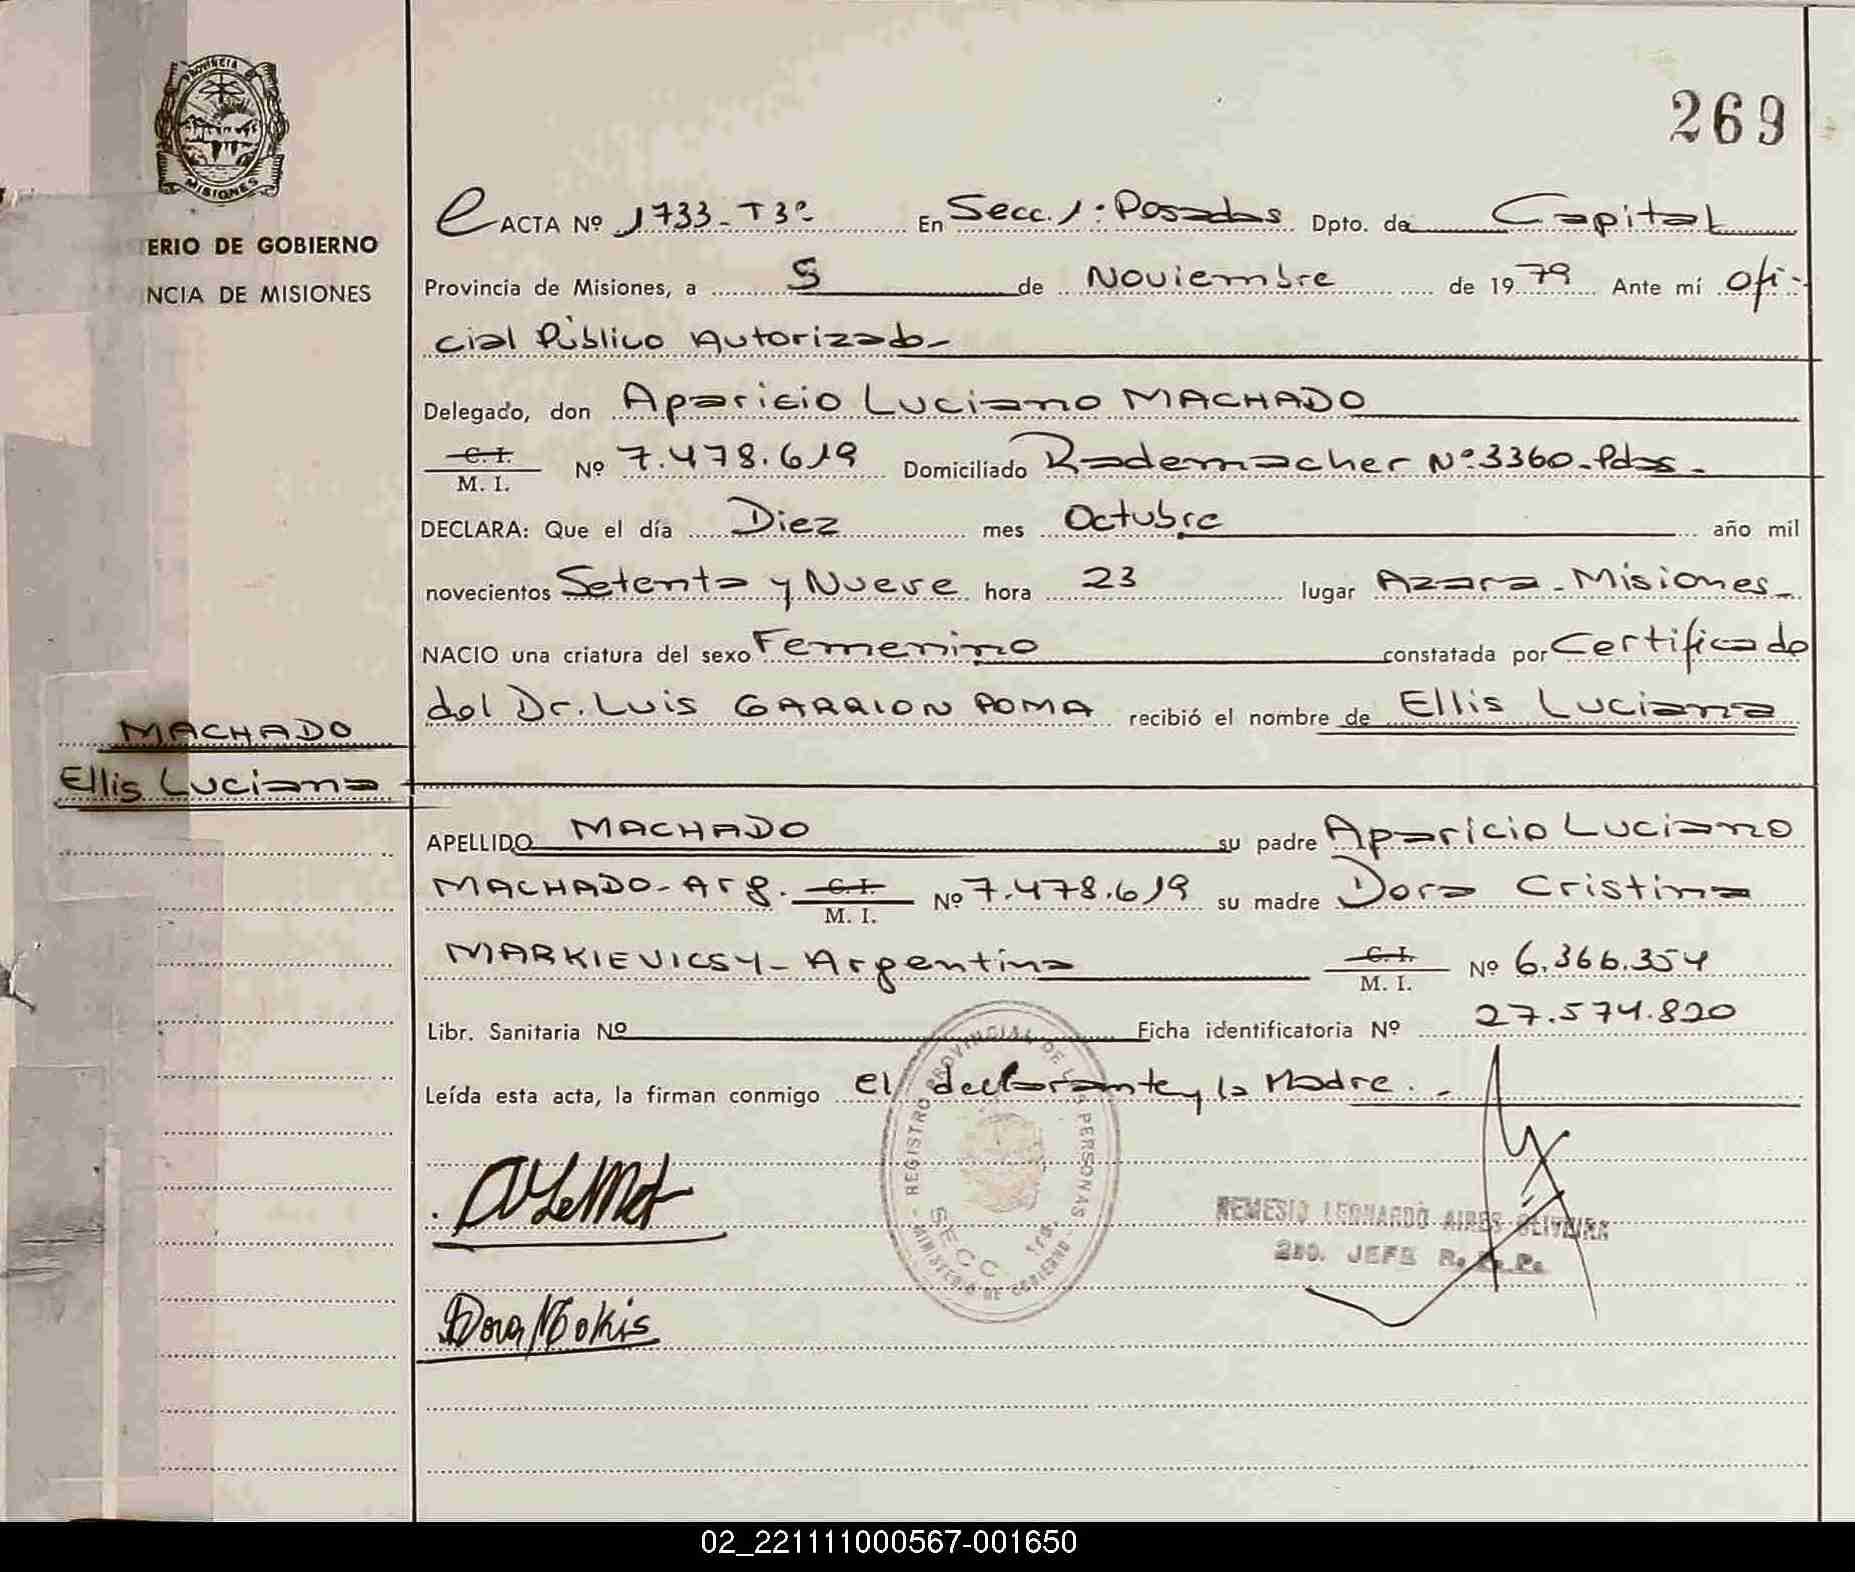 PROVINCIA DE
MISIONES
ERIO DE GOBIERNO
NCIA DE MISIONES
269
ACTA Nº 1733-T3º En Secc. 1º Posadas Dpto. de Capital
Provincia de Misiones, a 5 de Noviembre de 1979 Ante mí Ofi-
cial Público Autorizado-
Delegado, don Aparicio Luciano MACHADO
C. I.
M. I. Nº 7.478.619 Domiciliado Rademacher Nº 3360-Pdas-
DECLARA: Que el día Diez mes Octubre año mil
novecientos Setenta y Nueve hora 23 lugar Azara-Misiones-
NACIO una criatura del sexo Femenino constatada por Certificado
del Dr. Luis GARRION POMA recibió el nombre de Ellis Luciana
MACHADO
Ellis Luciana
APELLIDO MACHADO su padre Aparicio Luciano
MACHADO-Arg. C. I.
M. I. Nº 7.478.619 su madre Dora Cristina
MARKIEVICSY-Argentina C. I.
M. I. Nº 6.366.354
Libr. Sanitaria Nº Ficha identificatoria Nº 27.574.820
Leída esta acta, la firman conmigo el declarante y la Madre.-
REGISTRO PROVINCIAL DE LAS PERSONAS
MINISTERIO DE GOBIERNO
SECC 1ra.
NEMESIO LEONARDO AIRES OLIVEIRA
2do. JEFE R. P. P.
02_221111000567-001650